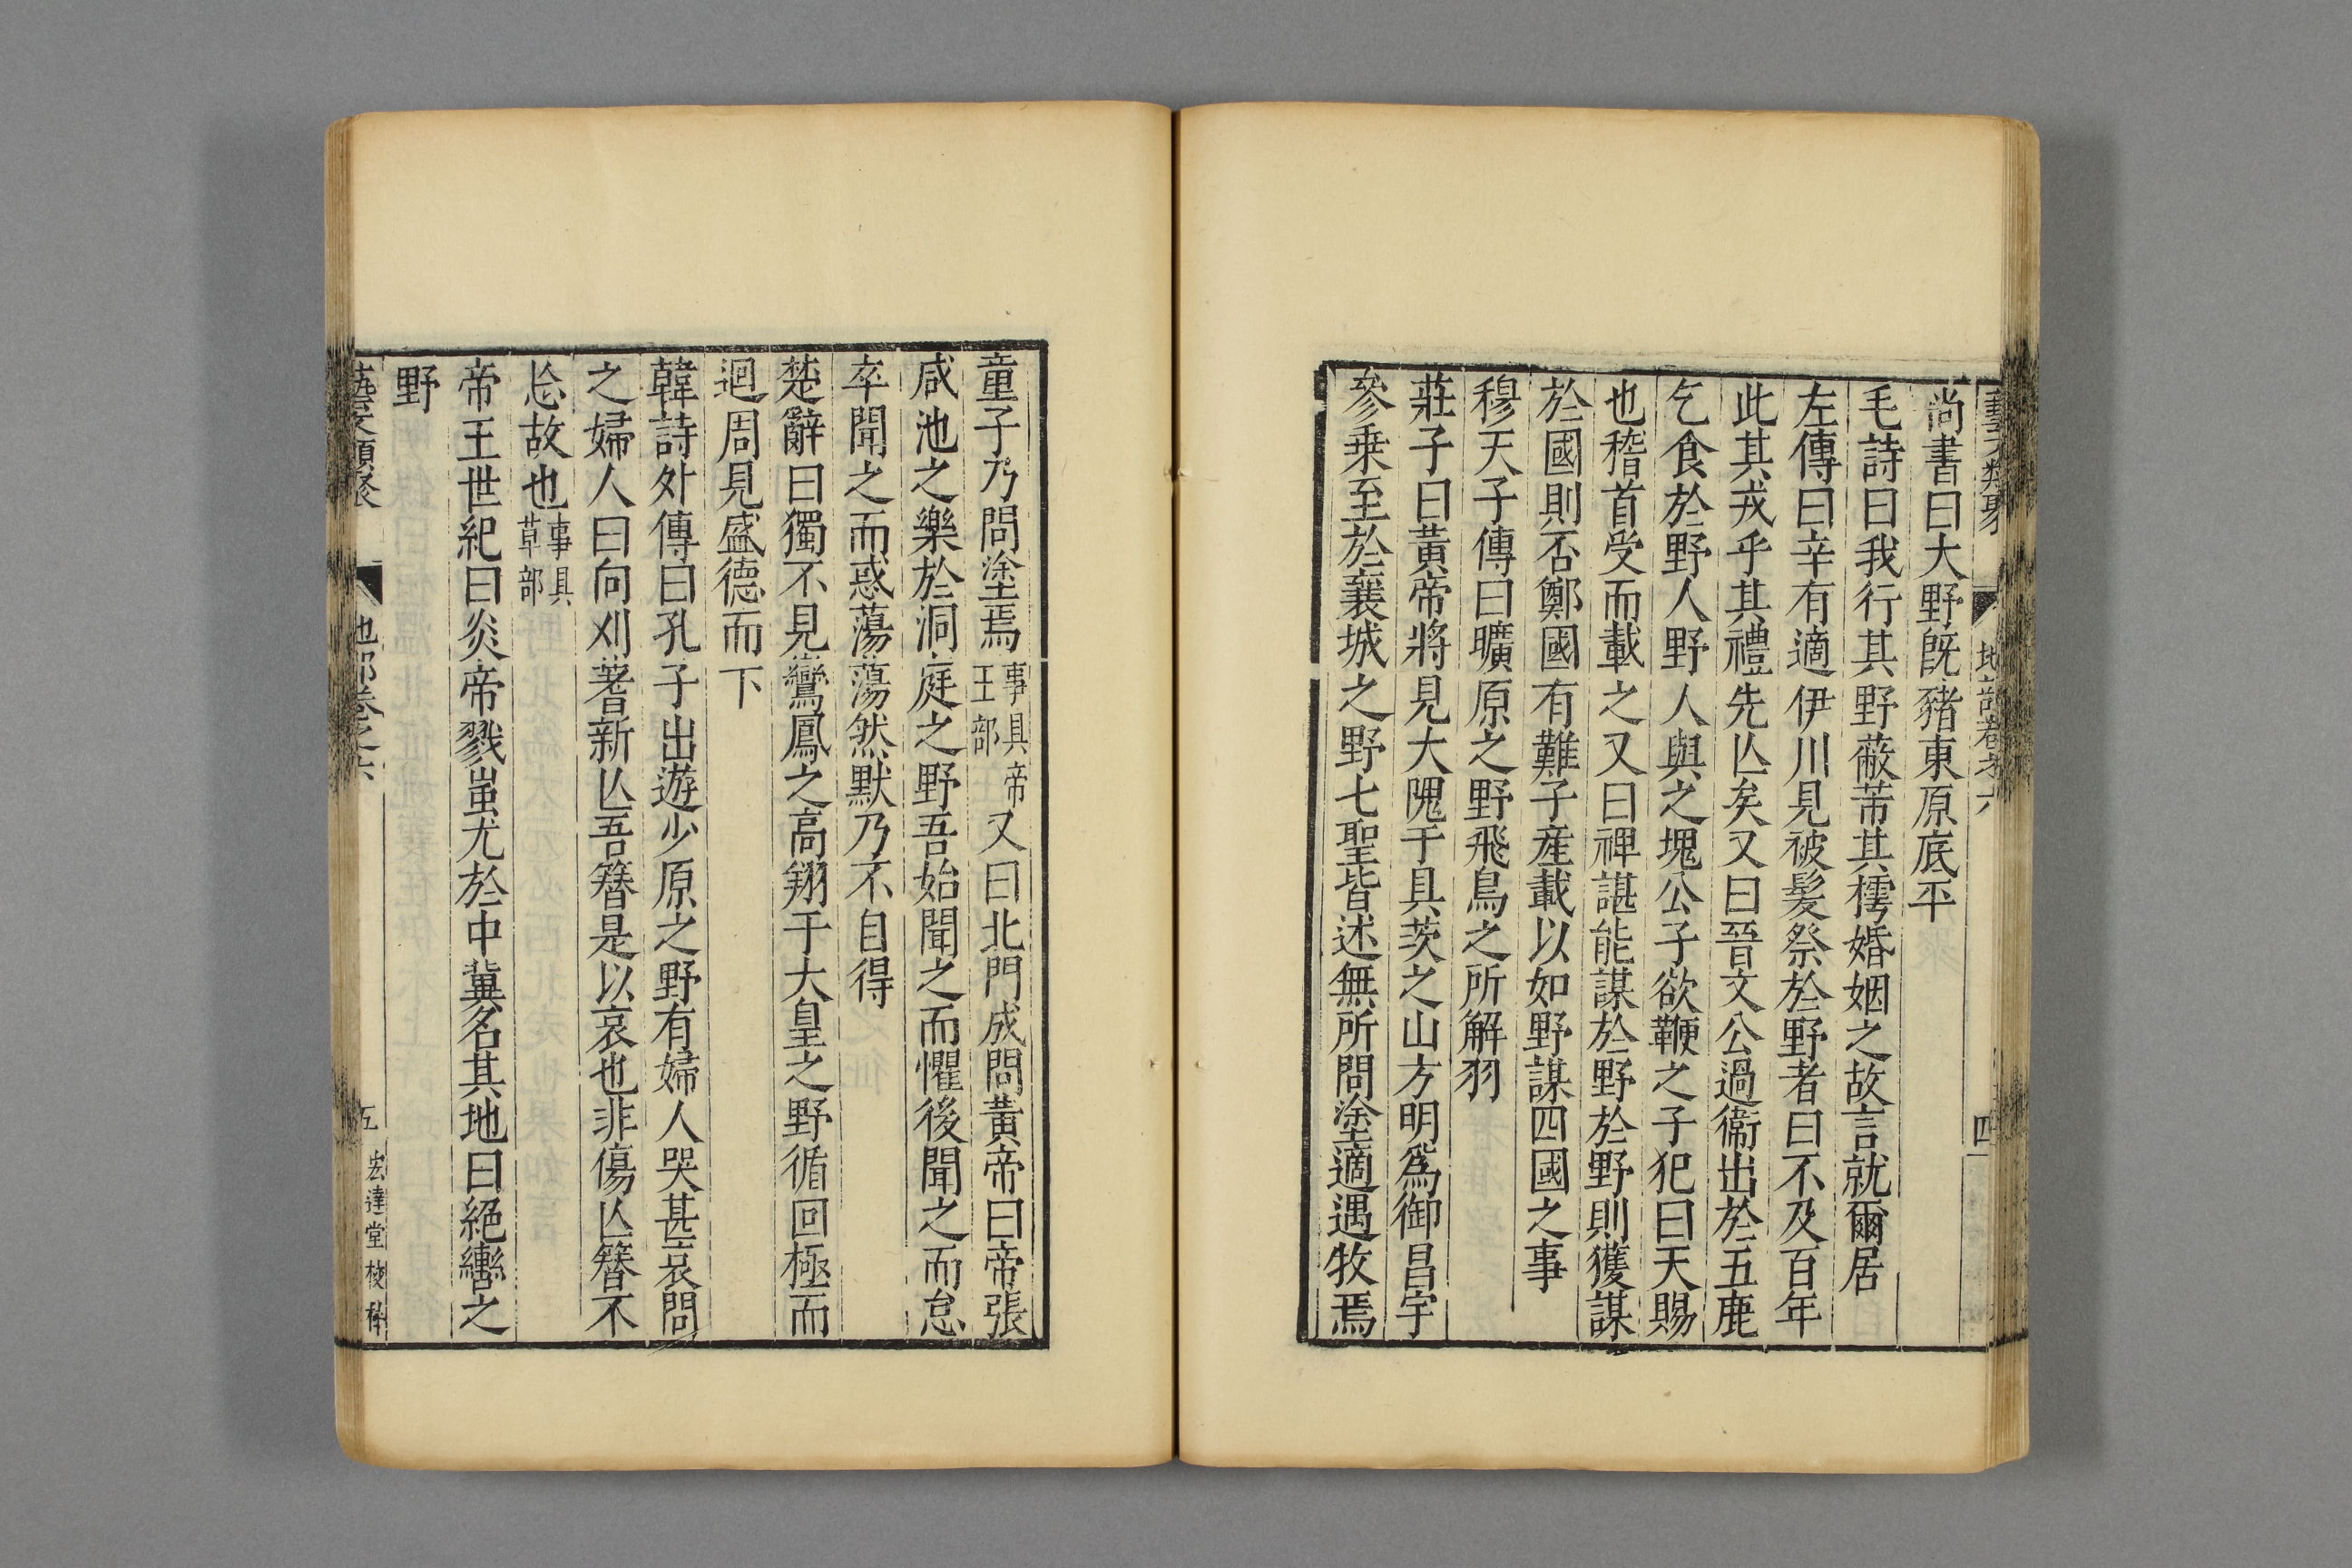 藝文類聚 地部卷之六 四
尚書曰大野旣豬東原底平
毛詩曰我行其野蔽芾其樗婚姻之故言就爾居
左傳曰辛有適伊川見被髮祭於野者曰不及百年
此其戎乎其禮先亾矣又曰晉文公過衞出於五鹿
乞食於野人野人與之塊公子欲鞭之子犯曰天賜
也稽首受而載之又曰禆諶能謀於野於野則獲謀
於國則否鄭國有難子産載以如野謀四國之事
穆天子傳曰曠原之野飛鳥之所解羽
莊子曰黃帝將見大隗于具茨之山方明爲御昌宇
參乗至於襄城之野七聖皆迷無所問塗適遇牧焉
童子乃問塗焉事具帝王部又曰北門成問黃帝曰帝張
咸池之樂於洞庭之野吾始聞之而懼後聞之而怠
卒聞之而惑蕩蕩然默乃不自得
楚辭曰獨不見鸞鳳之高翔于大皇之野循回極而
迴周見盛德而下
韓詩外傳曰孔子出遊少原之野有婦人哭甚哀問
之婦人曰向刈蓍新亾吾簪是以哀也非傷亾簪不
忘故也事具草部
帝王世紀曰炎帝戮蚩尤於中冀名其地曰絕轡之
野
藝文類聚 地部卷之六 五 宏達堂校栞